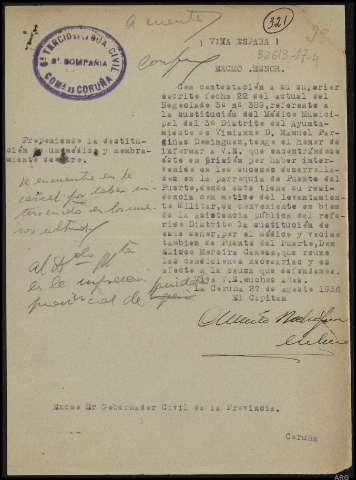 a cuenta
321
8º TERCIO GUARDIA CIVIL
8ª COMPAÑIA
COMª DE CORUÑA
¡ VIVA ESPAÑA !
EXCMO SEÑOR.
Proponiendo la destitu-
ción de un médico y nombra-
miento de otro.
Con contestación a su superior
escrito fecha 22 del actual del
Negociado 3º nº 389, referente a
la sustitución del Médico Munici-
pal del 3º Distrito del Ayunta-
miento de Vimianzo D. Manuel Par-
giñas Dominguez, tengo el honor de
informar a V.E. que encontrándose
éste en prisión por haber interve-
nido en los sucesos desarrolla-
dos en la parroquia de Puente del
Puerto, donde este tiene su resi-
dencia con motivo del levantamien-
to Militar, es conveniente en bien
de la asistencia pública del refe-
rido Distrito la sustitución de
este señor, por el médico y vecino
tambien de Puente del Puerto, Don
que reune
las condiciones necesarias y es
afecto a la causa que defendemos.
Dios V.E. muchos años.
La Coruña 27 de agosto 1936
El Capitan
Se encuentra en la
cárcel por haber in-
tervenido en los suce-
sos ultimos
Al
en la inspección
provincial de
Excmo Sr Gobernador Civil de la Provincia.
Coruña
ARG